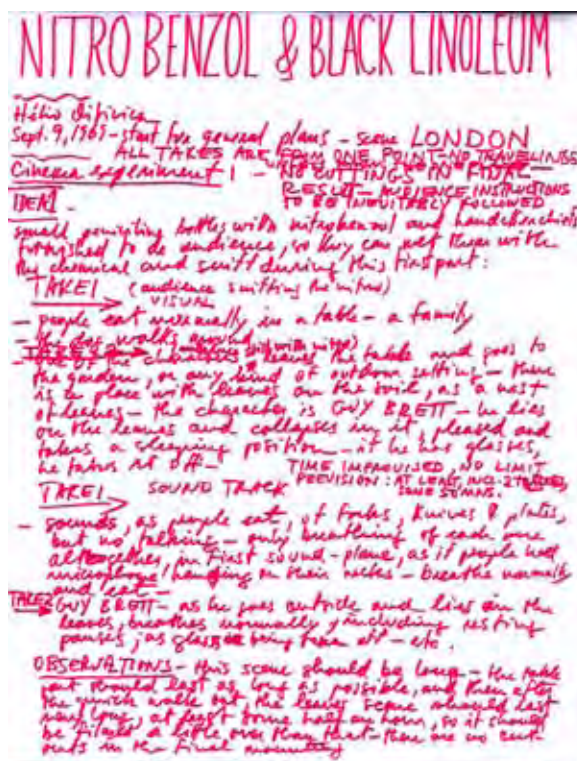 NITRO BENZOL & BLACK LINOLEUM
Hélio Oiticica
Sept. 9, 1969 - start for general plans - scene LONDON
ALL TAKES ARE FROM ONE POINT - NO TRAVELINGS
Cinema experiment 1 - NO CUTTINGS IN FINAL
RESULT - AUDIENCE INSTRUCTIONS
TO BE INEVITABLY FOLLOWED
ITEM 1 -
small bottles with nitrobenzol and handkerchiefs
furnished to de audience, so they can wet them with
the chemical and sniff during this first part:
TAKE 1 (audience sniffing the nitro)
VISUAL
- people eat normally in a table - a family
- the dog walks around
- one of the characters leaves the table and goes to
the garden, or any kind of outdoor setting - there
is a place with leaves on the soil, as a nest
of leaves - the character is GUY BRETT - he lies
on the leaves and collapses in it, pleased and
takes a sleeping position - if he has glasses,
he takes it off -
TIME IMPROVISED, NO LIMIT
PREVISION: AT LEAST, INCL. 2 TAKES,
SOME 50 MNS.
TAKE 1 SOUND TRACK
- sounds, as people eat, of forks, knives & plates,
but no talking - only breathing of each one
altogether, in first sound-plane, as if people had
microphones hanging on their necks - breathe normally
and eat -
TAKE 2 GUY BRETT - as he goes outside and lies in the
leaves, breathes normally including resting
pauses, as glasses being taken off - etc.
OBSERVATIONS - this scene should be long - the table
part should last as long as possible, and then after
the quick walk out, the leaves scene should last
very long, at least some half an hour, so it should
be filmed a little over than that - there are no cut-
outs in the final mounting